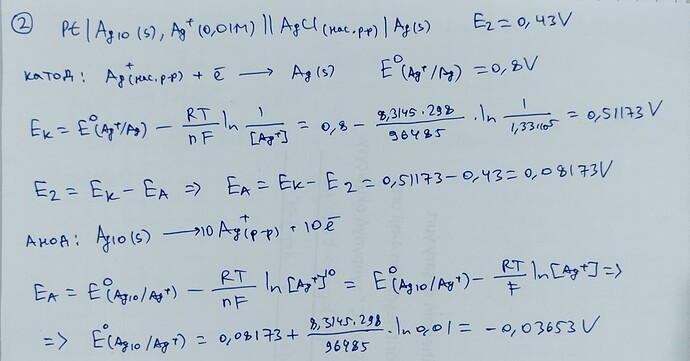 ② Pt | Ag10 (s), Ag⁺ (0,01M) || AgCl (нас. р-р) | Ag(s) E2 = 0,43V
катод: Ag⁺(нас. р-р) + ē → Ag(s) E⁰(Ag⁺/Ag) = 0,8V
Eк = E⁰(Ag⁺/Ag) − RT/nF ln 1/[Ag⁺] = 0,8 − 8,3145·298/96485 · ln 1/1,33·10⁻⁵ = 0,51173 V
E2 = Eк − EА ⇒ EА = Eк − E2 = 0,51173 − 0,43 = 0,08173V
Анод: Ag10(s) → 10 Ag⁺(р-р) + 10ē
EА = E⁰(Ag10/Ag⁺) − RT/nF ln[Ag⁺]¹⁰ = E⁰(Ag10/Ag⁺) − RT/F ln[Ag⁺] ⇒
⇒ E⁰(Ag10/Ag⁺) = 0,08173 + 8,3145·298/96485 · ln 0,01 = −0,03653 V